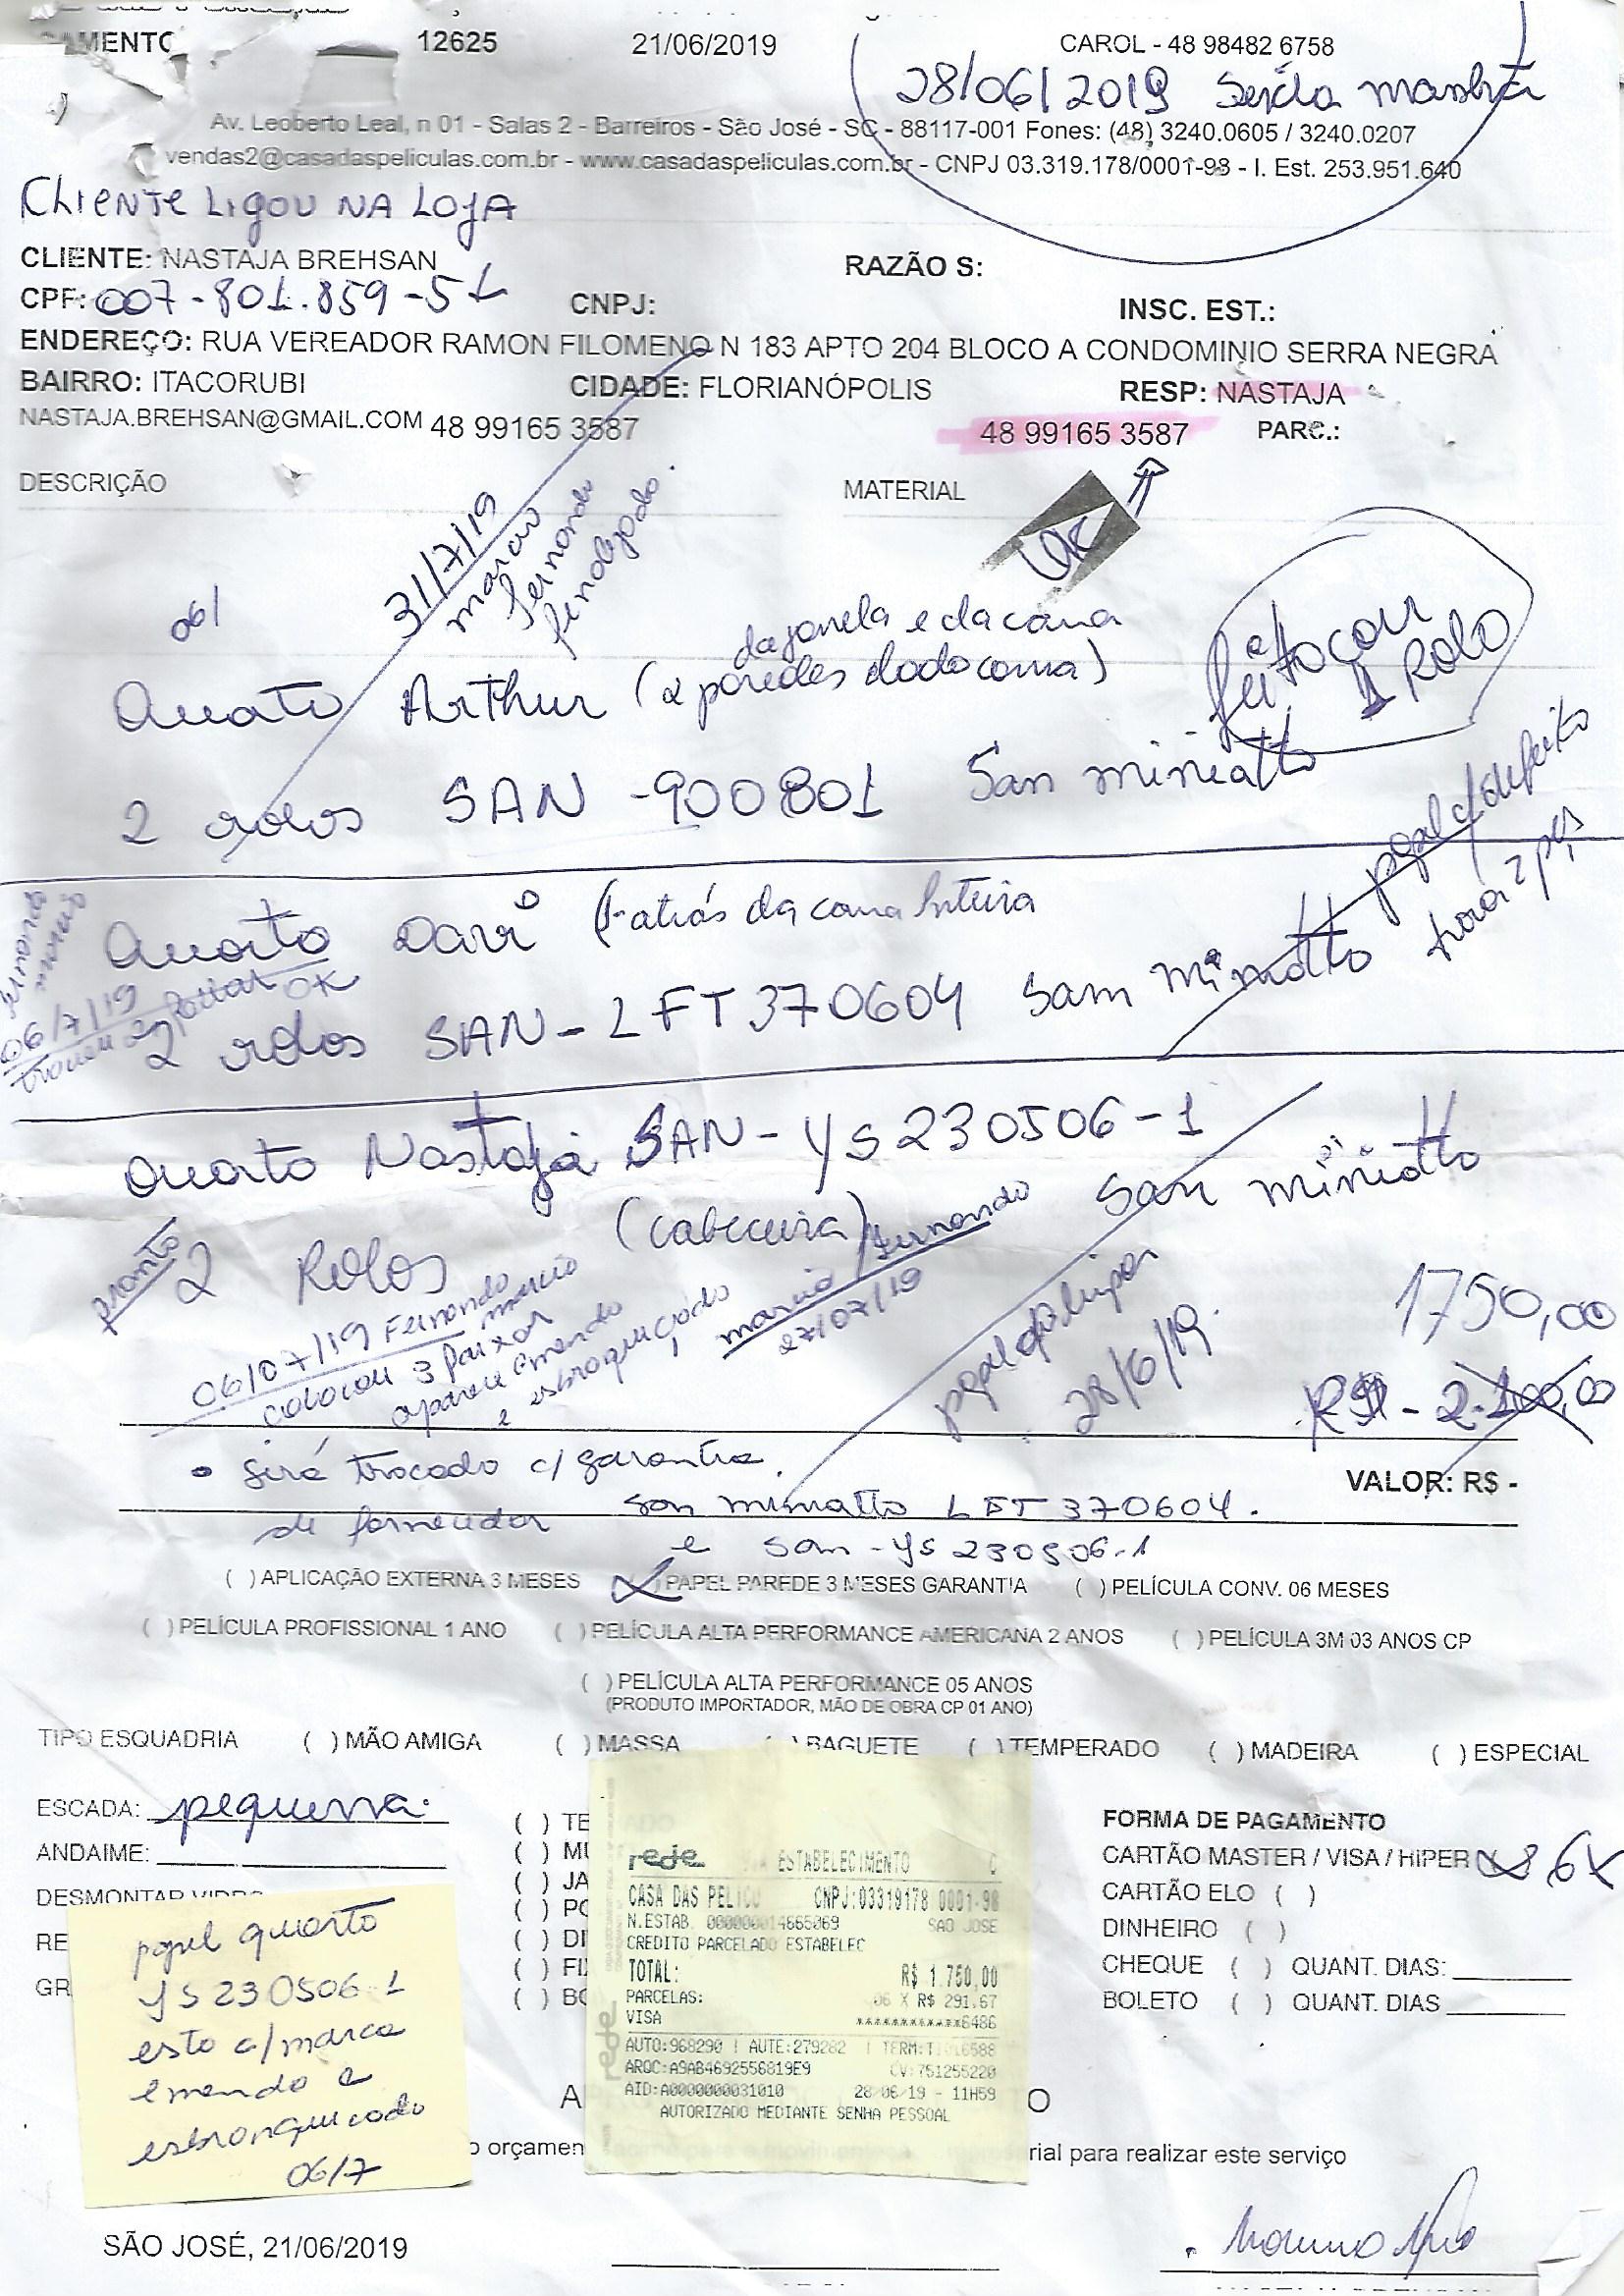 12625 21/06/2019 CAROL - 48 98482 6758
28/06/2019 Sexta manhã
Av. Leoberto Leal, n 01 - Salas 2 - Barreiros - São José - SC - 88117-001 Fones: (48) 3240.0605 / 3240.0207
vendas2@casadaspeliculas.com.br - www.casadaspeliculas.com.br - CNPJ 03.319.178/0001-98 - I. Est. 253.951.640
CLIENTE LIGOU NA LOJA
CLIENTE: NASTAJA BREHSAN RAZÃO S:
CPF: 007-801.859-51 CNPJ: INSC. EST.:
ENDEREÇO: RUA VEREADOR RAMON FILOMENO N 183 APTO 204 BLOCO A CONDOMINIO SERRA NEGRA
BAIRRO: ITACORUBI CIDADE: FLORIANÓPOLIS RESP: NASTAJA
NASTAJA.BREHSAN@GMAIL.COM 48 99165 3587 48 99165 3587 PARC.:
DESCRIÇÃO MATERIAL
OK
31/7/19
marcio
fernando
06/
da janela e da cama
Quarto Arthur (2 paredes do da cama)
feito com
1 ROLO
2 rolos SAN - 900801 San miniatto
papel c/ defeito
Quarto Davi (1-atrás da cama Inteira
06/7/19
OK
2 rolos SAN - LFT370604 Sam miniatto
Quarto Nastaja SAN - YS230506-1
San miniatto
pronto
2 Rolos (cabeceira)
marcio / Fernando
27/07/19
06/07/19 Fernando marcio
colocou 3 faixas
aparece emenda
e esbranquiçado
28/6/19.
1750,00
R$ - 2.100,00
• Será trocado c/ garantia
VALOR: R$ -
de fornecedor san miniatto LFT 370604.
e San - YS 230506-1
( ) APLICAÇÃO EXTERNA 3 MESES (X) PAPEL PAREDE 3 MESES GARANTIA ( ) PELÍCULA CONV. 06 MESES
( ) PELÍCULA PROFISSIONAL 1 ANO ( ) PELÍCULA ALTA PERFORMANCE AMERICANA 2 ANOS ( ) PELÍCULA 3M 03 ANOS CP
( ) PELÍCULA ALTA PERFORMANCE 05 ANOS
(PRODUTO IMPORTADOR, MÃO DE OBRA CP 01 ANO)
TIPO ESQUADRIA ( ) MÃO AMIGA ( ) MASSA ( ) BAGUETE ( ) TEMPERADO ( ) MADEIRA ( ) ESPECIAL
ESCADA: pequena.
ANDAIME:
DESMONTAR VIDRO
RE
GR
( ) TE
( ) MU
( ) JA
( ) PO
( ) DI
( ) FI
( ) BO
FORMA DE PAGAMENTO
CARTÃO MASTER / VISA / HIPER (X) 6X
CARTÃO ELO ( )
DINHEIRO ( )
CHEQUE ( ) QUANT. DIAS:
BOLETO ( ) QUANT. DIAS
papel quarto
YS230506 1
esta c/ marca
emenda e
esbranquicado
06/7
rede ESTABELECIMENTO
CASA DAS PELICU CNPJ:03319178 0001-98
N.ESTAB. 000000014665069 SAO JOSE
CREDITO PARCELADO ESTABELEC
TOTAL: R$ 1.750,00
PARCELAS: 06 X R$ 291,67
VISA ************6486
AUTO:968290 | AUTE:279282 | TERM:
AROC:A9AB4692556819E9 CV:751255220
AID:A0000000031010 28/06/19 - 11H59
AUTORIZADO MEDIANTE SENHA PESSOAL
o orçamen rial para realizar este serviço
SÃO JOSÉ, 21/06/2019